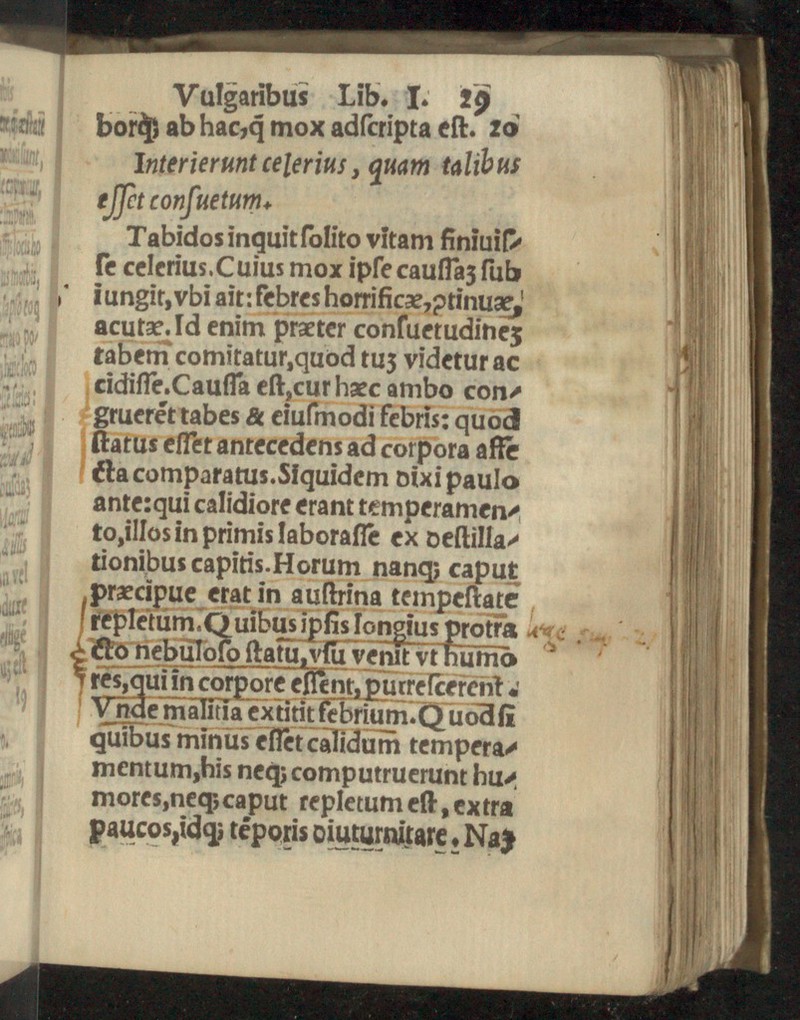 Vulgaribus Lib. I. 29
borq́ꝫ ab hac,q̃ mox adſcripta eſt. 20
Interierunt celerius, quam talibus
eſſet conſuetum.
Tabidos inquit ſolito vitam finiuiſ⸗
ſe celerius.Cuius mox ipſe cauſſaꝫ ſub
iungit,vbi ait: febres horrificæ,ꝯtinuæ,
acutæ.Id enim præter conſuetudineꝫ
tabem comitatur,quod tuꝫ videtur ac
cidiſſe.Cauſſa eſt,cur hæc ambo con⸗
gruerét tabes & eiuſmodi febris: quod
ſtatus eſſet antecedens ad corpora affe
cta comparatus.Siquidem dixi paulo
ante:qui calidiore erant temperamen⸗
to,illos in primis laboraſſe ex deſtilla⸗
tionibus capitis.Horum nanqꝫ caput
præcipue erat in auſtrina tempeſtate
repletum.Quibus ipſis longius protra
cto nebuloſo ſtatu,vſu venit vt humo
res,qui in corpore eſſent, putreſcerent.
Vnde malitia extitit febrium.Quod ſi
quibus minus eſſet calidum tempera⸗
mentum,his neqꝫ computruerunt hu⸗
mores,neqꝫ caput repletum eſt, extra
paucos,idqꝫ téporis diuturnitate. Naꝫ